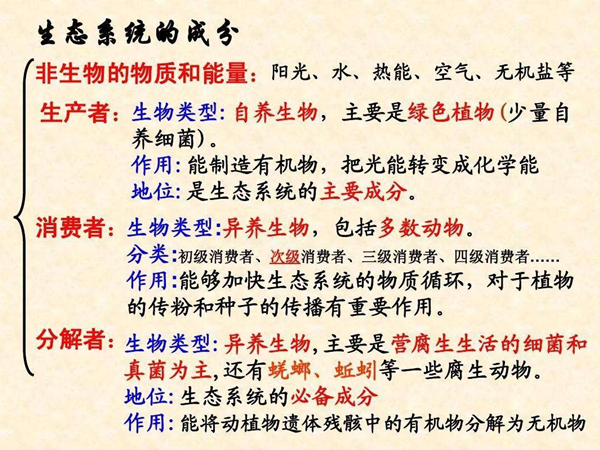 生态系统的成分
非生物的物质和能量：阳光、水、热能、空气、无机盐等
生产者：生物类型: 自养生物，主要是绿色植物(少量自
养细菌)。
作用: 能制造有机物，把光能转变成化学能
地位: 是生态系统的主要成分。
消费者：生物类型:异养生物，包括多数动物。
分类:初级消费者、次级消费者、三级消费者、四级消费者……
作用:能够加快生态系统的物质循环，对于植物
的传粉和种子的传播有重要作用。
分解者：生物类型: 异养生物,主要是营腐生生活的细菌和
真菌为主,还有蜣螂、蚯蚓等一些腐生动物。
地位: 生态系统的必备成分
作用: 能将动植物遗体残骸中的有机物分解为无机物